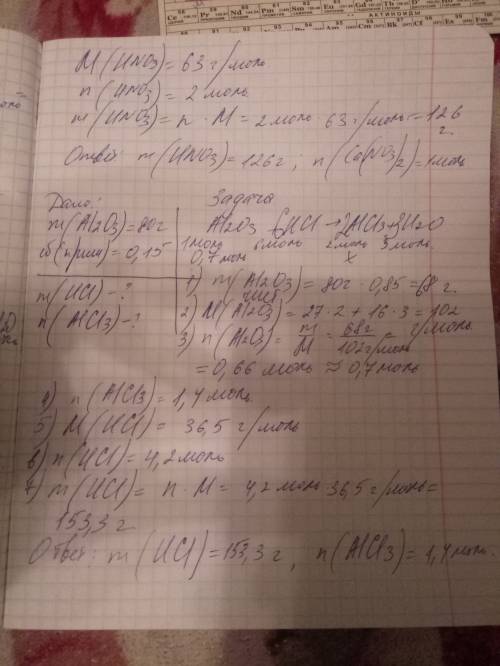 M(HNO3) = 63 г/моль
n(HNO3) = 2 моль
m(HNO3) = n · M = 2 моль · 63 г/моль = 126 г.
Ответ: m(HNO3) = 126 г; n(Ca(NO3)2) = 1 моль
Дано:
m(Al2O3) = 80г
ω(прим) = 0,15
m(HCl) - ?
n(AlCl3) - ?
Задача
Al2O3 + 6HCl → 2AlCl3 + 3H2O
1 моль 6 моль 2 моль 3 моль
0,7 моль x
1) m(Al2O3 чист) = 80г · 0,85 = 68 г.
2) M(Al2O3) = 27 · 2 + 16 · 3 = 102 г/моль
3) n(Al2O3) = m/M = 68г/102г/моль =
= 0,66 моль ≈ 0,7 моль
4) n(AlCl3) = 1,4 моль
5) M(HCl) = 36,5 г/моль
6) n(HCl) = 4,2 моль
7) m(HCl) = n · M = 4,2 моль · 36,5 г/моль =
153,3 г
Ответ: m(HCl) = 153,3 г, n(AlCl3) = 1,4 моль.